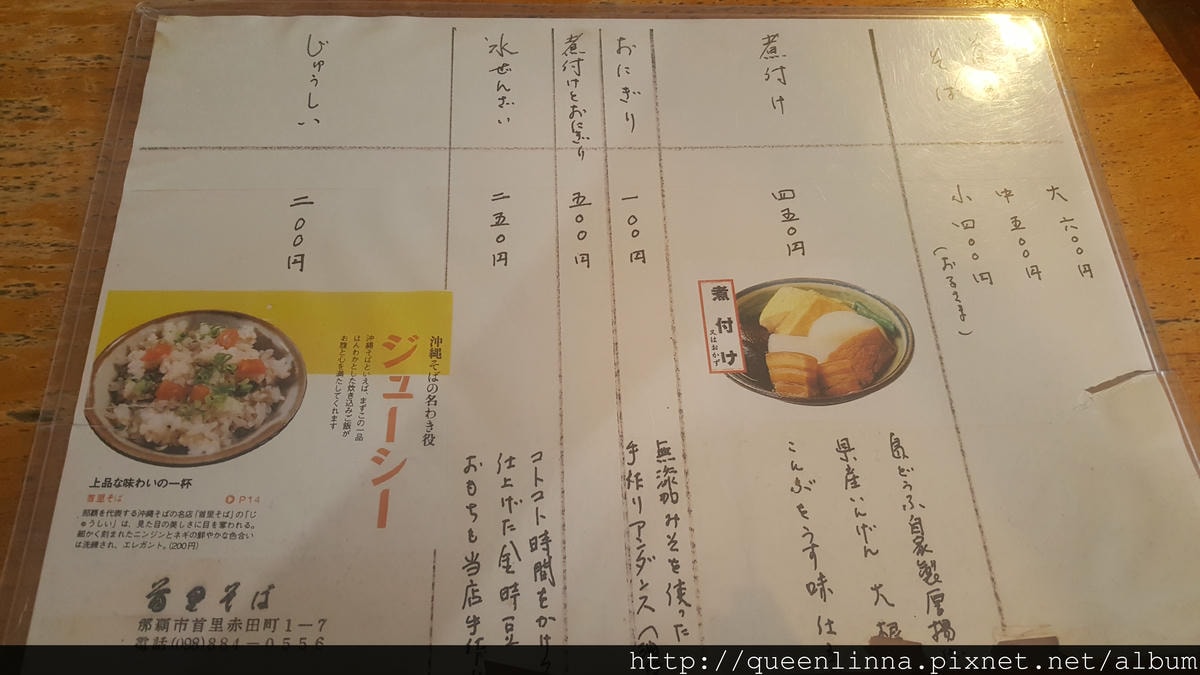 そば
大 六〇〇円
中 五〇〇円
小 四〇〇円
(おこさま)
煮付け
四五〇円
煮付け
又はおかず
島どうふ自家製厚揚
県産いんげん 大根
こんぶをうす味仕
おにぎり
一〇〇円
無添加みそを使った
手作りアンダンス
煮付けとおにぎり
五〇〇円
氷ぜんざい
二五〇円
コトコト時間をかけ
仕上げた金時豆
おもちも当店手作
じゅうしい
二〇〇円
沖縄そばの名わき役
ジューシー
沖縄そばといえば、まずこの一品
ほんわかとした炊き込みご飯が
お腹と心を満たしてくれます
上品な味わいの一杯
首里そば P14
那覇を代表する沖縄そばの名店「首里そば」の「じ
ゅうしい」は、見た目の美しさに目を奪われる。
細かく刻まれたニンジンとネギの鮮やかな色合い
は洗練され、エレガント。(200円)
首里そば
那覇市首里赤田町1-7
電話(098)884-0556
http://queenlinna.pixnet.net/album